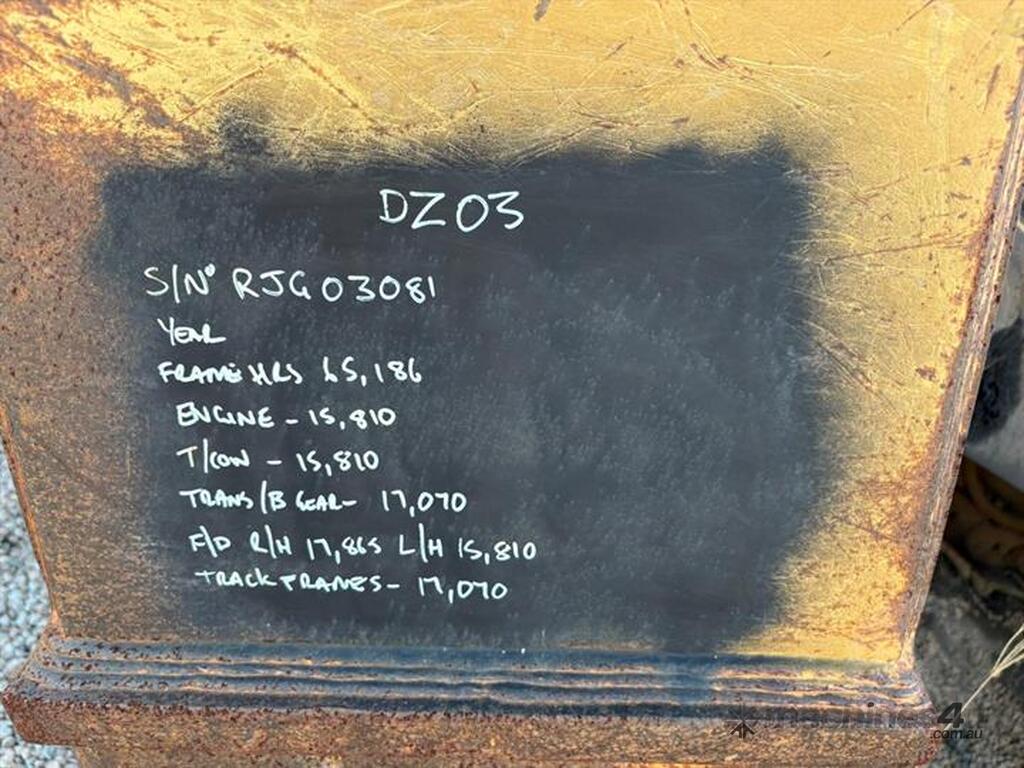 DZ03
S/Nº RJG03081
YEAR
FRAME HRS 65,186
ENGINE - 15,810
T/CON - 15,810
TRANS/B GEAR- 17,070
F/D R/H 17,865 L/H 15,810
TRACK FRAMES - 17,070
machines4u
.com.au